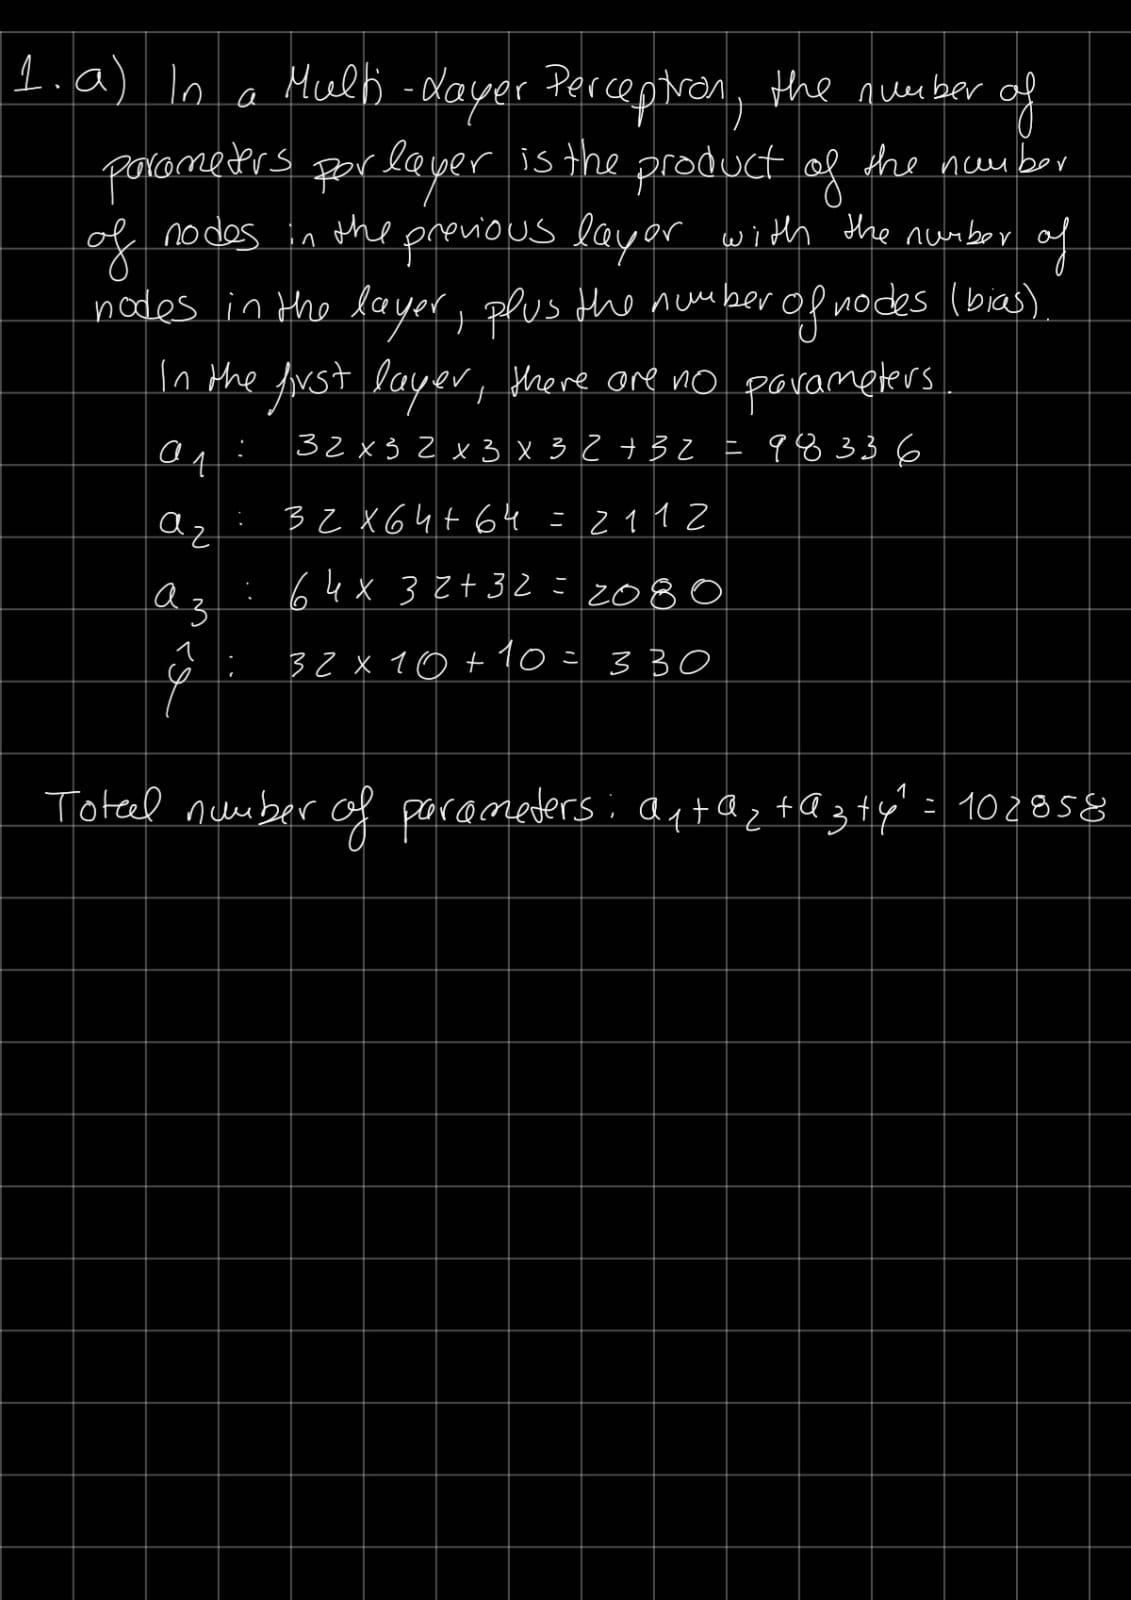 1. a) In a Multi-Layer Perceptron, the number of
parameters per layer is the product of the number
of nodes in the previous layer with the number of
nodes in the layer, plus the number of nodes (bias).
In the first layer, there are no parameters.
a₁ : 32 x 32 x 3 x 32 + 32 = 98336
a₂ : 32 x 64 + 64 = 2112
a₃ : 64 x 32 + 32 = 2080
ŷ : 32 x 10 + 10 = 330
Total number of parameters: a₁ + a₂ + a₃ + ŷ = 102858